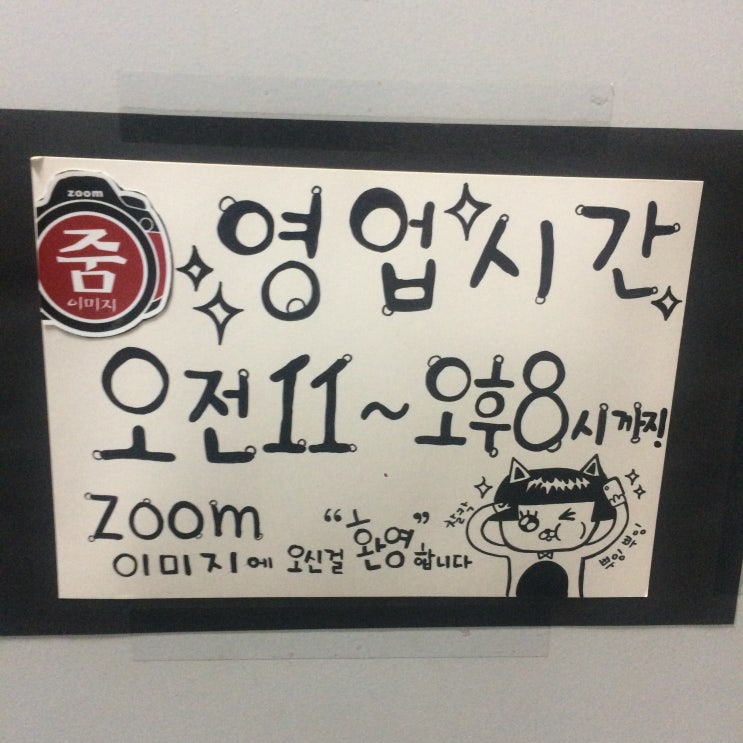 zoom
줌
이미지
영업시간
오전11~오후8시까지!
zoom
이미지에 오신걸 “환영”합니다
찰칵
뿌잉 뿌잉